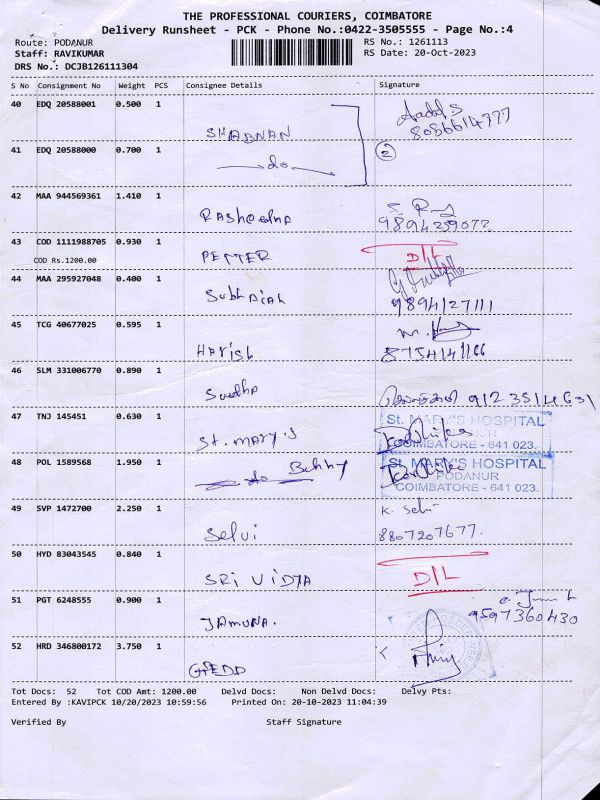 THE PROFESSIONAL COURIERS, COIMBATORE
Delivery Runsheet - PCK - Phone No.:0422-3505555 - Page No.:4
Route: PODANUR RS No.: 1261113
Staff: RAVIKUMAR RS Date: 20-Oct-2023
DRS No.: DCJB126111304
S No Consignment No Weight PCS Consignee Details Signature
40 EDQ 20588001 0.500 1
SHABNAN 8056614777
41 EDQ 20588000 0.700 1 2
do
42 MAA 944569361 1.410 1
Rasheedha 9894259072
43 COD 1111988705 0.930 1
COD Rs.1200.00 PETTER D/L
44 MAA 295927048 0.400 1
Subbaiah 9894127111
45 TCG 40677025 0.595 1
Harish 8754141166
46 SLM 331006770 0.890 1
Sudha 9123514631
47 TNJ 145451 0.630 1 St. MARY'S HOSPITAL
St. MARY'S COIMBATORE - 641 023.
48 POL 1589568 1.950 1 St. MARY'S HOSPITAL
do PODANUR
COIMBATORE - 641 023.
49 SVP 1472700 2.250 1 K. Selvi
Selvi 8807207677.
50 HYD 83043545 0.840 1
SRI VIDYA D/L
51 PGT 6248555 0.900 1
JAMUNA. 9597360430
52 HRD 346800172 3.750 1
Tot Docs: 52 Tot COD Amt: 1200.00 Delvd Docs: Non Delvd Docs: Delvy Pts:
Entered By :KAVIPCK 10/20/2023 10:59:56 Printed On: 20-10-2023 11:04:39
Verified By Staff Signature